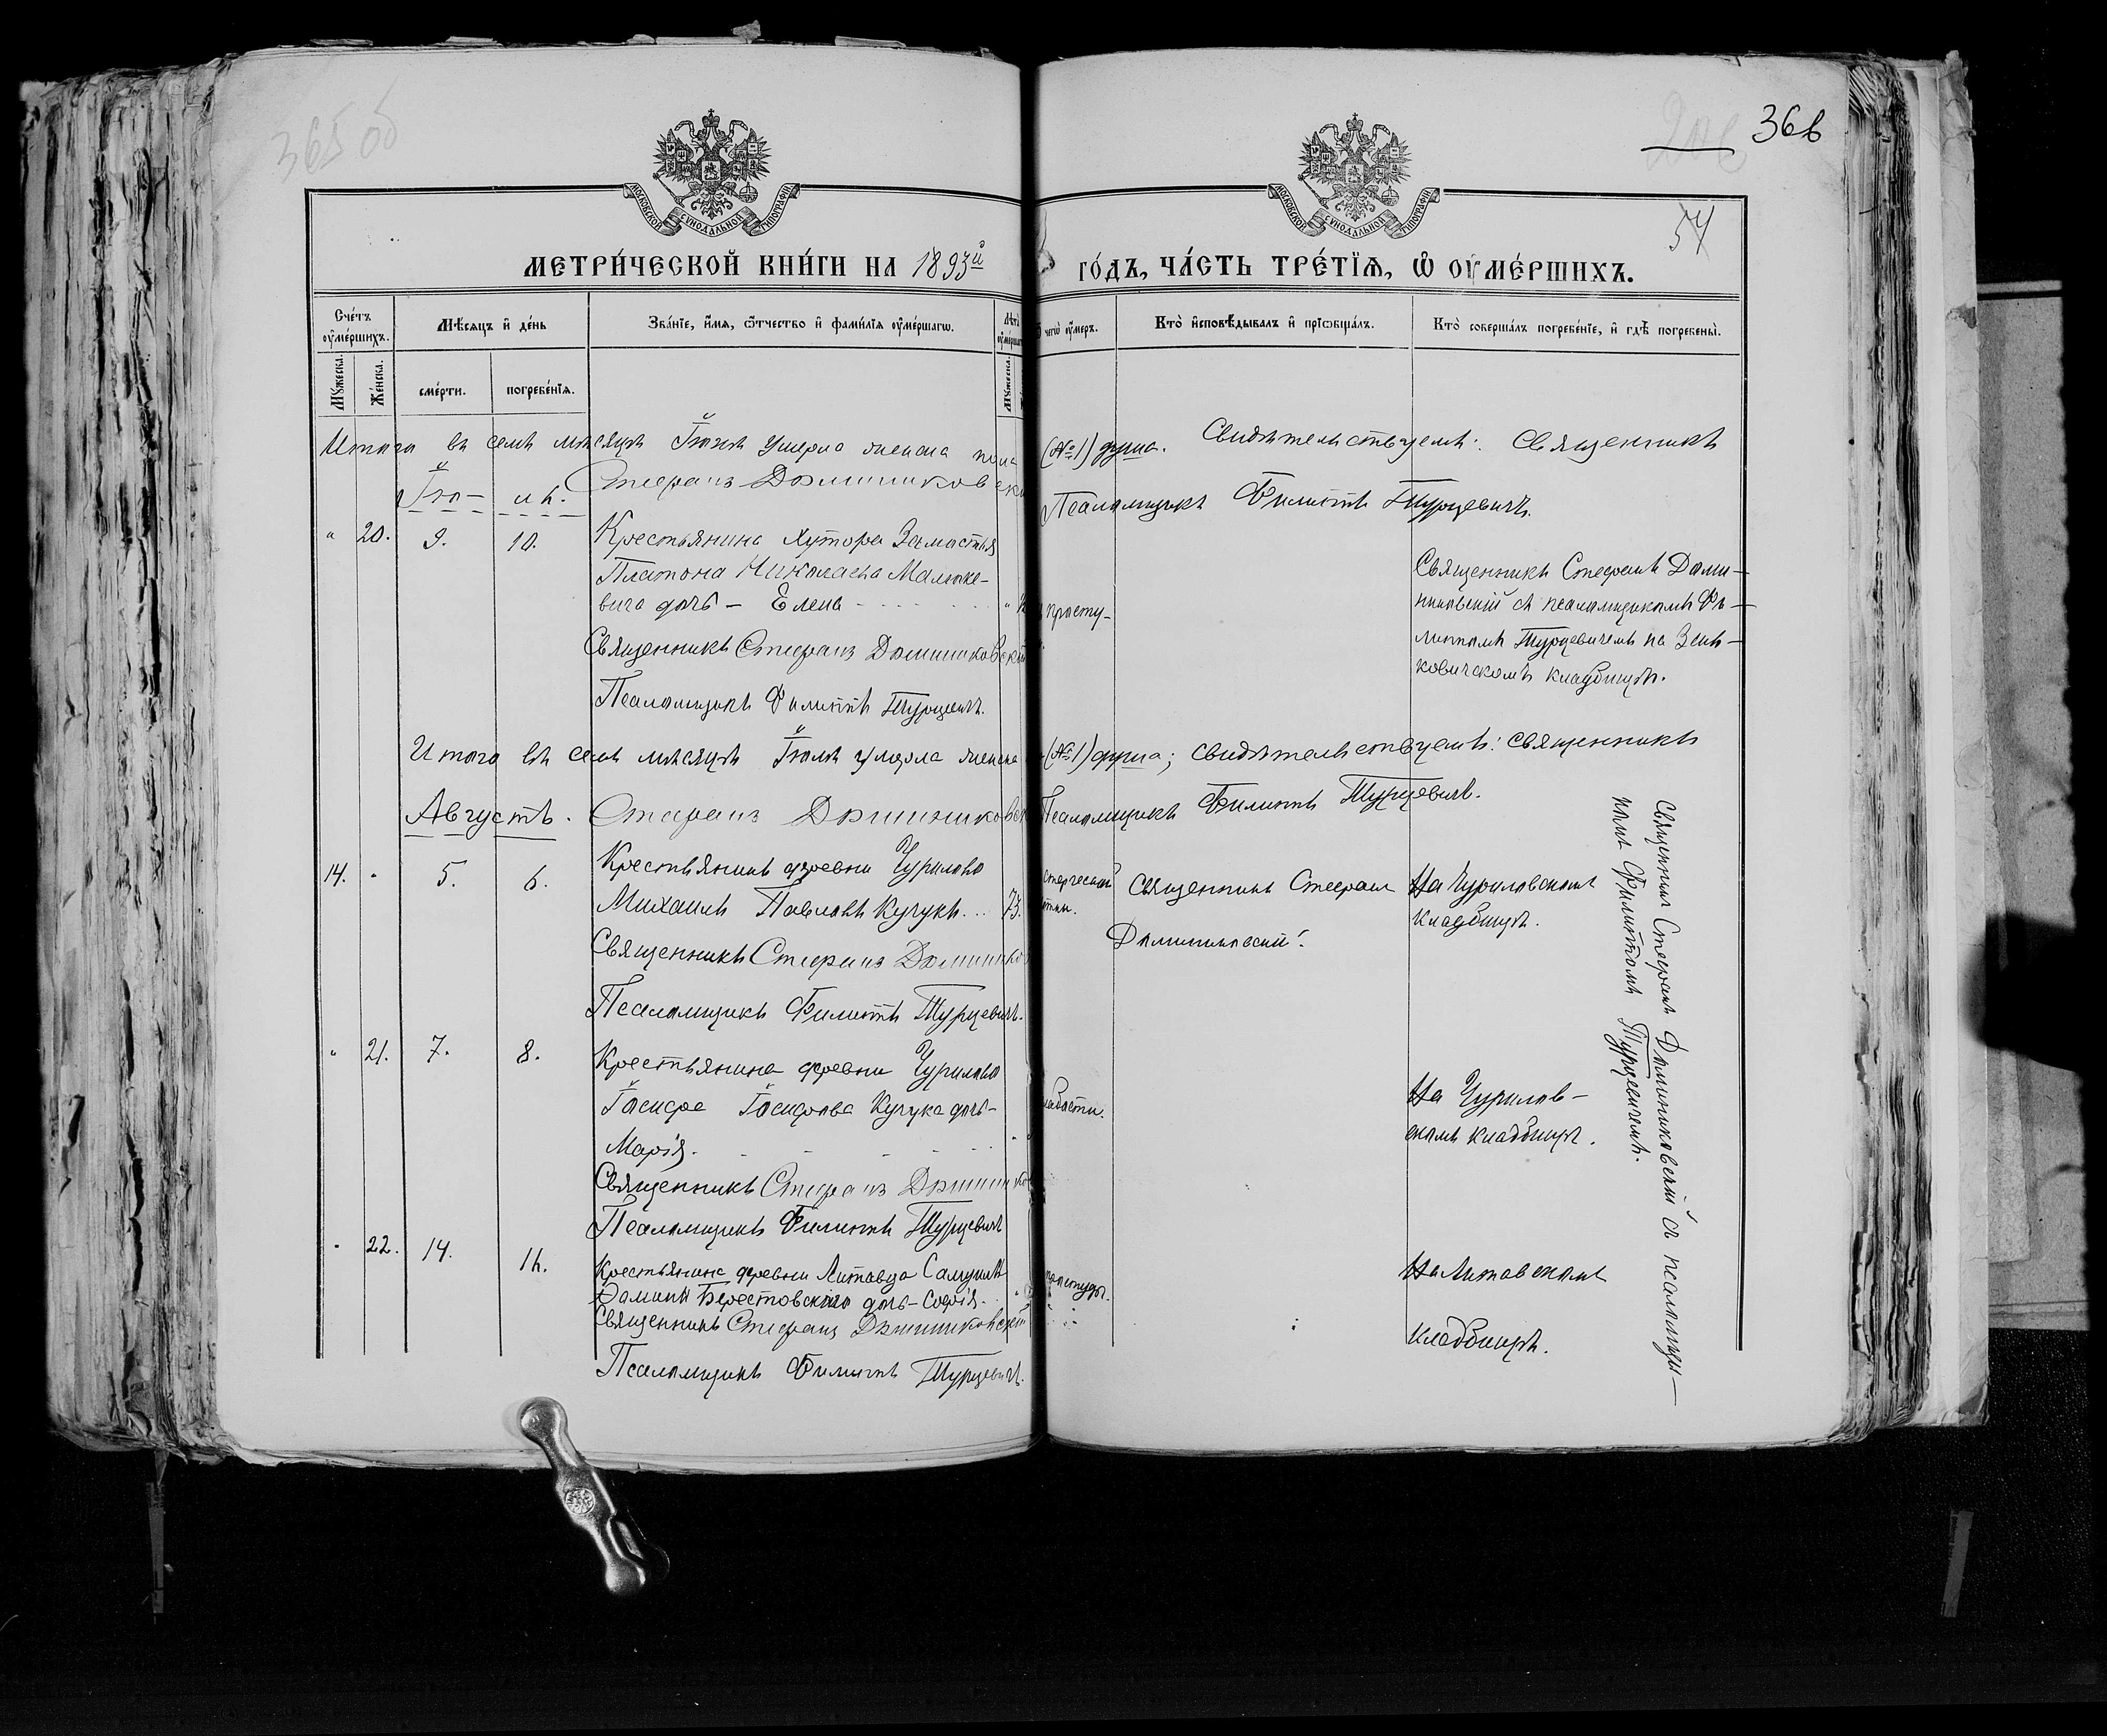 365 об
366
54
МОСКОВСКОЙ СѴНОДАЛЬНОЙ ТИПОГРАФІИ
МОСКОВСКОЙ СѴНОДАЛЬНОЙ ТИПОГРАФІИ
МЕТРИ́ЧЕСКОЙ КНИ́ГИ НА 1893й
ГО́ДЪ, ЧА́СТЬ ТРЕ́ТЇѦ, Ѡ ОУМЕ́РШИХЪ.
Сче́тъ оумє́ршихъ.
Мѣ́сяцъ и де́нь
Зва́нїе, и́мя, ѻ́тчество и фами́лїя оуме́ршагѡ.
Ѿ чегѡ̀ оу́меръ.
Кто̀ и҆сповѣ́дывалъ и҆ прїѡбща́лъ.
Кто̀ соверша́лъ погребе́нїе, и҆ гдѣ̀ погребены̀.
Му́жеска.
Же́нска.
сме́рти.
погребе́нїя.
Му́жеска.
Итого въ семъ мѣсяцѣ Іюнѣ умерла женска пола (№1) душа. Свидѣтельствуемъ: Священникъ
Стефанъ Доминиковскій Псаломщикъ Филиппъ Турцевичъ.
Іюль.
" 20. 9. 10. Крестьянина хутора Замостья
Платона Николаева Малюке-
вича дочь – Елена
простуды
Священникъ Стефанъ Доминиковскій
Псаломщикъ Филиппъ Турцевичъ.
Священникъ Стефанъ Доми-
никовскій съ псаломщикомъ Фи-
липпомъ Турцевичемъ на Зень-
ковичскомъ кладбищѣ.
Итого въ семъ мѣсяцѣ Іюлѣ умерла женска (№1) душа; свидѣтельствуемъ: Священникъ
Стефанъ Доминиковскій Псаломщикъ Филиппъ Турцевичъ.
Августъ.
14. " 5. 6. Крестьянинъ деревни Чурилово
Михаилъ Павловъ Кучукъ... 73.
Священникъ Стефанъ
Доминиковскій.
На Чуриловскомъ
кладбищѣ.
Священникъ Стефанъ Доминиковскій
Псаломщикъ Филиппъ Турцевичъ.
" 21. 7. 8. Крестьянина деревни Чурилово
Іосифа Іосифова Кучука дочь –
Марія.
слабости.
На Чурилов-
скомъ кладбищѣ.
Священникъ Стефанъ Доминиковскій
Псаломщикъ Филиппъ Турцевичъ
" 22. 14. 16. Крестьянина деревни Литовца Самуила
Берестовскаго дочь – Софія.
простуды.
На Литовскомъ
кладбищѣ.
Священникъ Стефанъ Доминиковскій
Псаломщикъ Филиппъ Турцевичъ.
Священникъ Стефанъ Доминиковскій съ псаломщи-
комъ Филиппомъ Турцевичемъ.